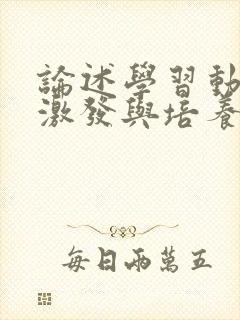 論述學習動
激發與培養
每日兩萬五